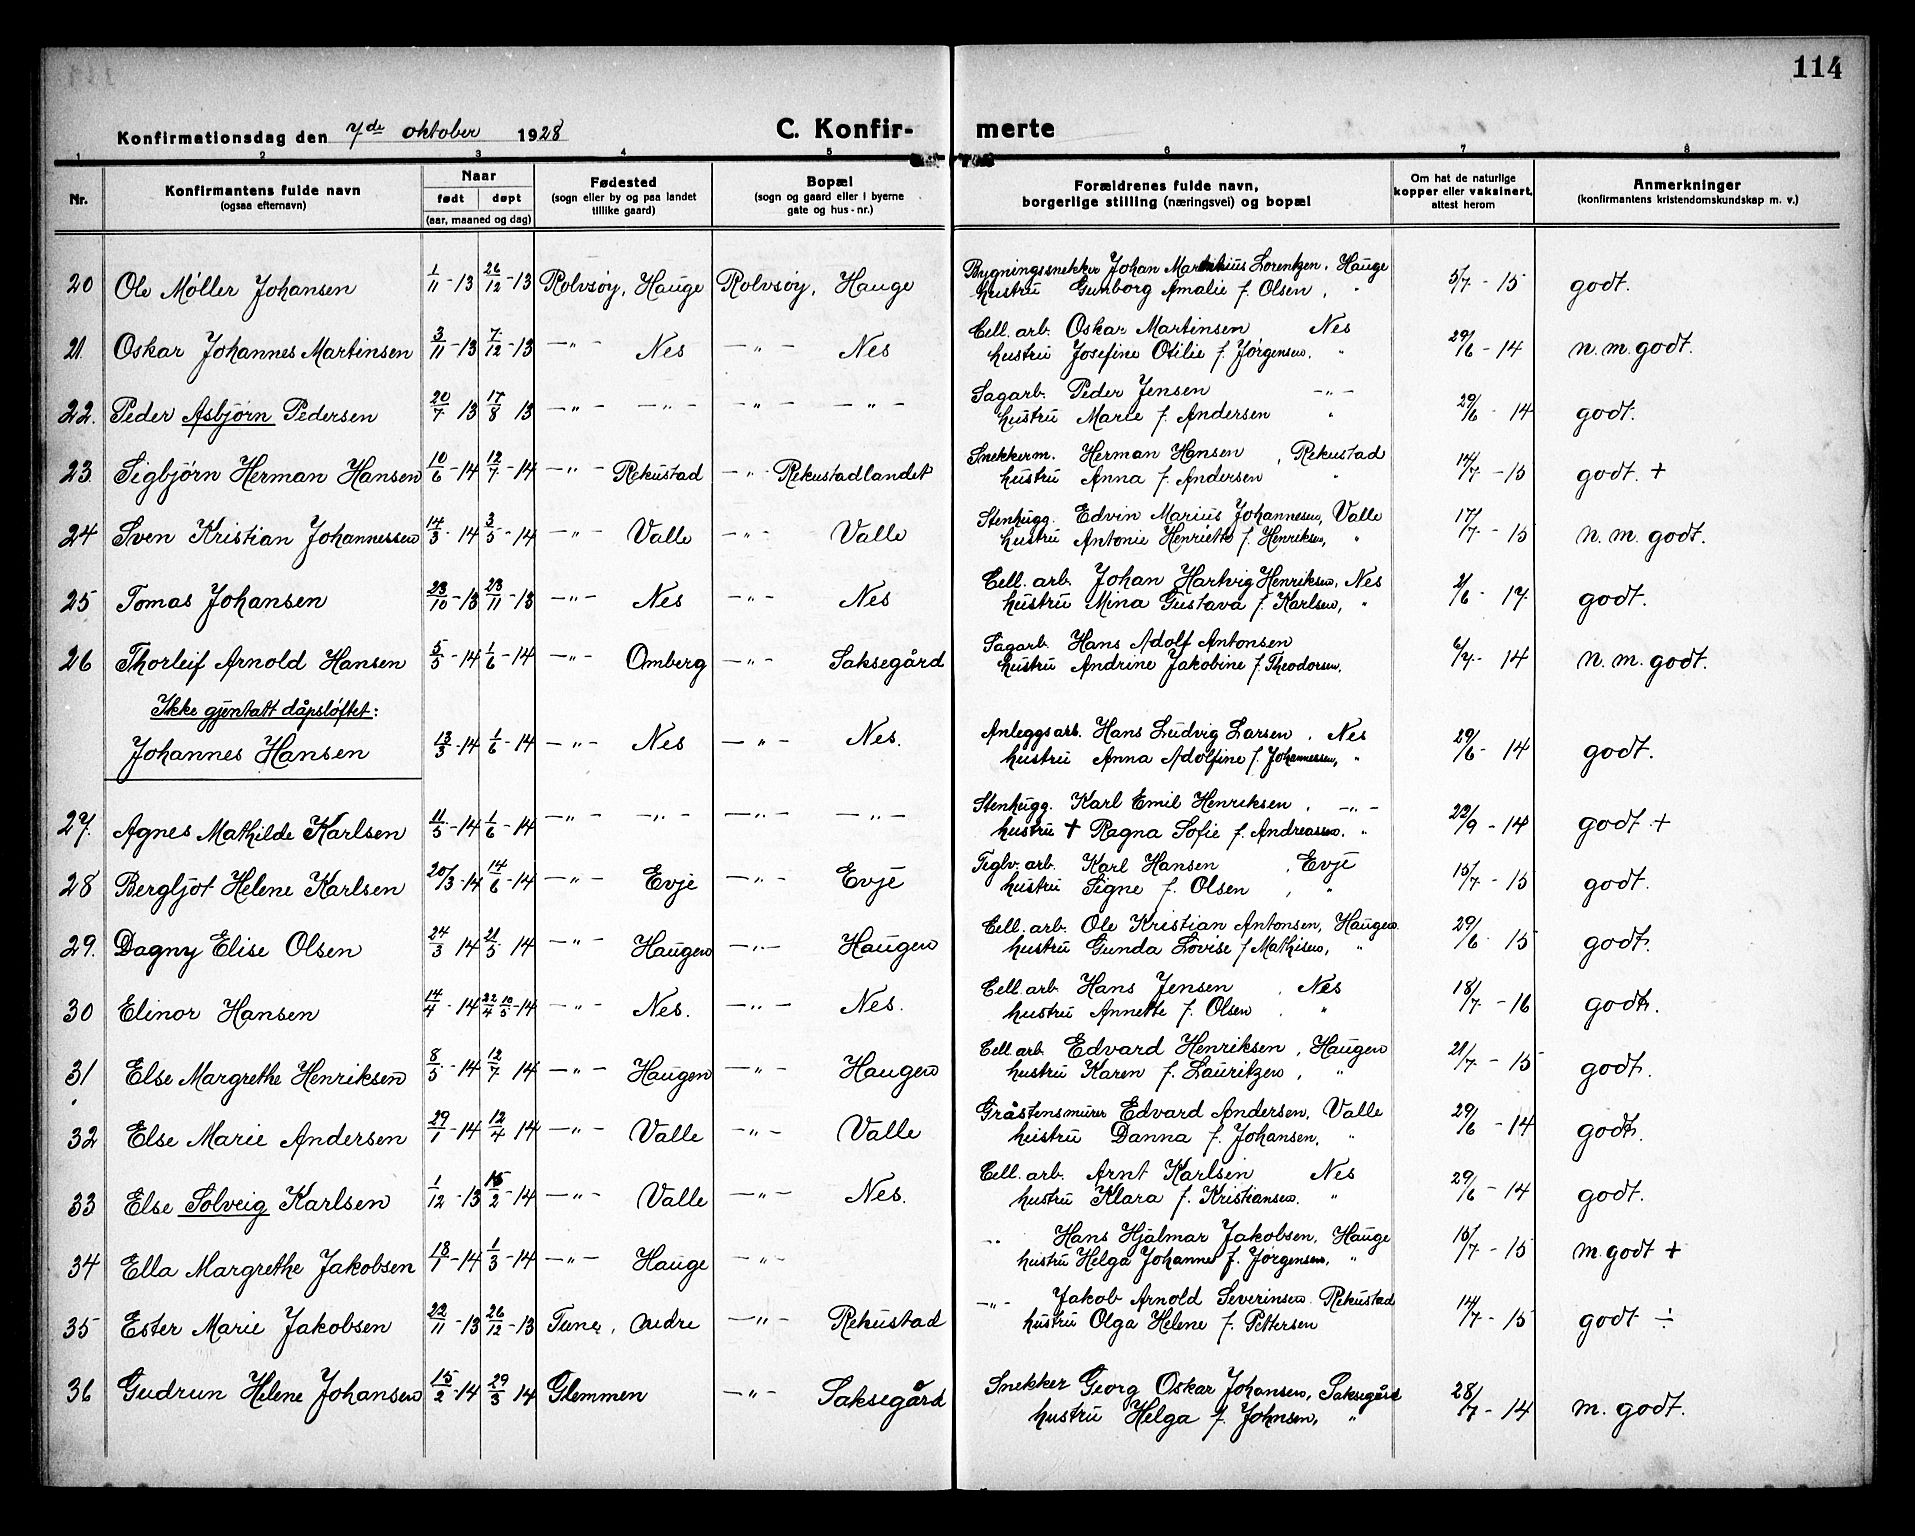 114
Konfirmationsdag den 7de oktober 1928
C. Konfir- merte
1 2 3 4 5 6 7 8
Nr.
Konfirmantens fulde navn
(ogsaa efternavn)
Naar
født døpt
(aar, maaned og dag)
Fødested
(sogn eller by og paa landet
tillike gaard)
Bopæl
(sogn og gaard eller i byerne
gate og hus-nr.)
Forældrenes fulde navn,
borgerlige stilling (næringsvei) og bopæl
Om hat de naturlige
kopper eller vaksinert,
altest herom
Anmerkninger
(konfirmantens kristendomskundskap m. v.)
20 Ole Møller Johansen 1/11-13 26/12-13 Rolvsøy, Hauge Rolvsøy, Hauge Bygningssnekker Johan Martinius Lorentzen, Hauge 5/7-15 godt.
hustru Gunborg Amalie f. Olsen, "
21. Oskar Johannes Martinsen 3/11-13 7/12-13 -"- Nes -"- Nes Cell. arb. Oskar Martinsen Nes 29/6-14 n. m. godt.
hustru Josefine Otilie f. Jørgensen. "
22. Peder Asbjørn Pedersen 20/7 13 17/8 13 -"- -"- -"- -"- Sagarb. Peder Jensen -"- 29/6-14 godt.
hustru Marie f. Andersen "
23. Sigbjørn Herman Hansen 10/6-14 12/7-14 -"- Rekustad -"- Rekustadlandet Snekkerm. Herman Hansen, Rekustad 14/7-15 godt. +
hustru Anna f. Andersen "
24 Sven Kristian Johannessen 14/3-14 3/5-14 -"- Valle -"- Valle Stenhugg. Edvin Marius Johannesen, Valle 17/7-15 n. m. godt.
hustru Antonie Henriette f. Henriksen, "
25 Tomas Johansen 23/10-13 23/11-13 -"- Nes -"- Nes Cell. arb. Johan Hartvig Henriksen, Nes 2/6-17 godt.
hustru Mina Gustava f. Karlsen, "
26 Thorleif Arnold Hansen 5/5-14 1/6-14 -"- Omberg -"- Saksegård Sagarb. Hans Adolf Antonsen 6/7-14 n. m. godt.
hustru Andrine Jakobine f. Theodorsen.
Ikke gjentatt dåpsløftet:
Johannes Hansen 13/3-14 1/6-14 -"- Nes -"- Nes. Anleggsarb. Hans Ludvig Larsen, Nes 29/6-14 godt.
hustru Anna Adolfine f. Johannessen, "
27. Agnes Mathilde Karlsen 11/5-14 1/6-14 -"- -"- -"- -"- Stenhugg. Karl Emil Henriksen, -"- 22/9-14 godt +
hustru + Ragna Sofie f. Andreasen. "
28 Bergljot Helene Karlsen 20/3-14 14/6-14 -"- Evje -"- Evje Teglv. arb. Karl Hansen, Evje 15/7-15 godt.
hustru Signe f. Olsen, "
29. Dagny Elise Olsen 24/3 14 21/5 14 -"- Haugen -"- Haugen Cell. arb. Ole Kristian Antonsen, Haugen 29/6-15 godt.
hustru Gunda Lovise f Mathisen, "
30 Elinor Hansen 14/4-14 22/4 10/5-14 -"- Nes. -"- Nes. Cell. arb. Hans Jensen, Nes 18/7-16 godt.
hustru Annette f. Olsen. "
31 Else Margrethe Henriksen 8/5-14 12/7 14 -"- Haugen -"- Haugen Cell. arb. Edvard Henriksen, Haugen 21/7-15 godt.
hustru Karen f. Lauritzen, "
32 Else Marie Andersen 29/1-14 12/4 14 -"- Valle -"- Valle Gråstensmurer Edvard Andersen, Valle 29/6-14 godt.
hustru Danna f. Johansen, "
33 Else Solveig Karlsen 1/12-13 15/2-14 -"- Valle -"- Nes. Cell. arb. Arnt Karlsen Nes 29/6-14 godt.
hustru Klara f. Kristiansen. "
34 Ella Margrethe Jakobsen 18/1-14 1/3-14 -"- Hauge -"- " Hans Hjalmar Jakobsen, Hauge 15/7-15 m. godt +
hustru Helga Johanne f. Jørgensen, "
35 Ester Marie Jakobsen 22/11-13 26/12-13 Tune, Ondre -"- Rekustad -"- Jakob Arnold Severinsen. Rekustad 14/7-15 godt ÷
hustru Olga Helene f. Pettersen
36 Gudrun Helene Johansen 15/2-14 29/3 14 Glemmen -"- Saksegård Snekker Georg Oskar Johansen, Saksegård 28/7-14 m. godt.
hustru Helga f. Johnsen, "